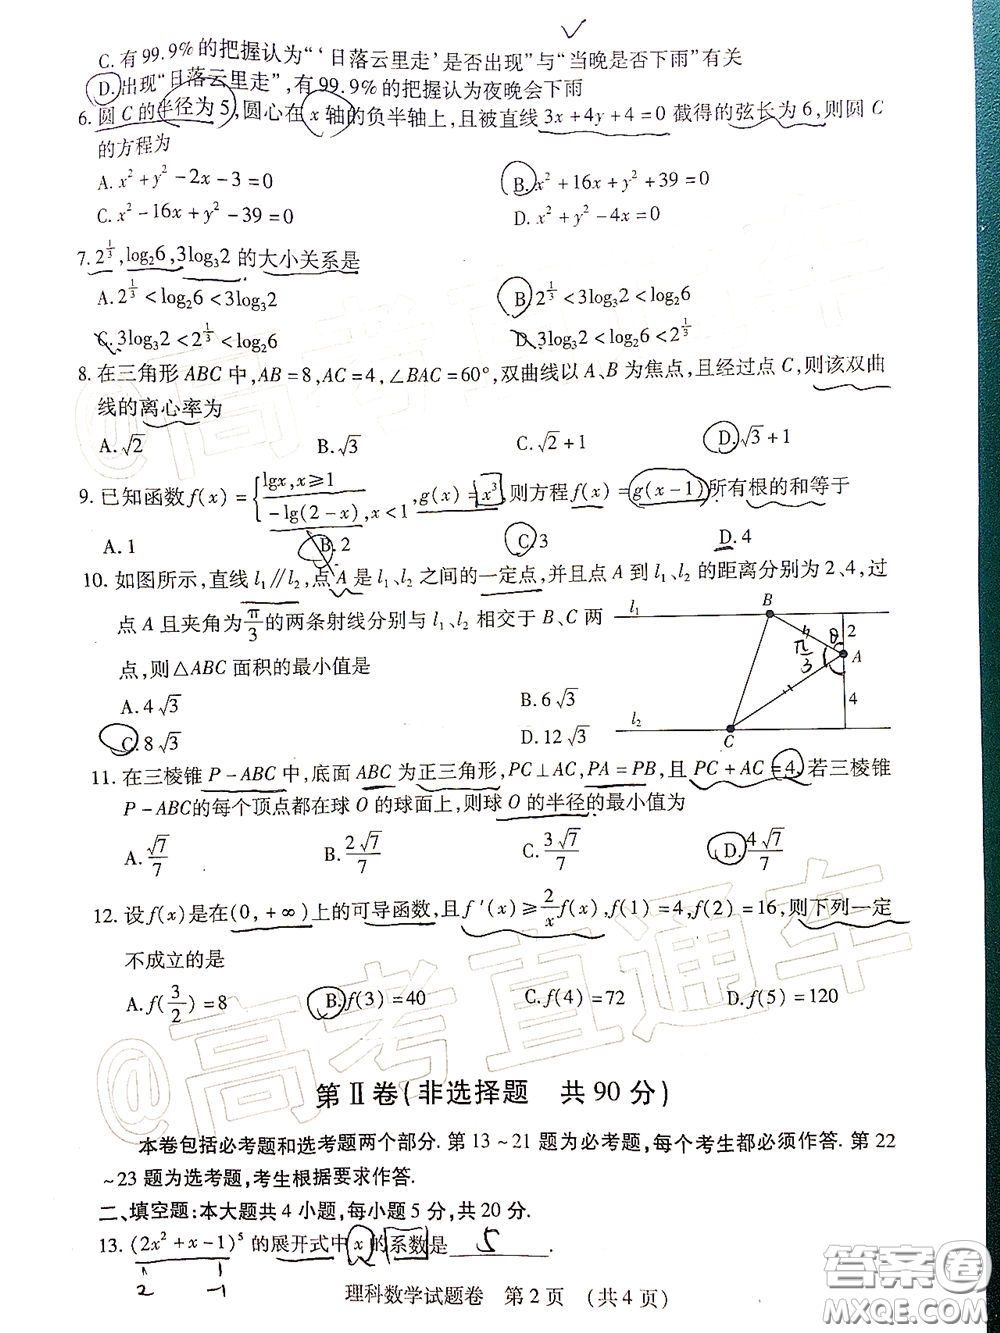 C.有99.9%的把握认为“‘日落云里走’是否出现”与“当晚是否下雨”有关
D.出现“日落云里走”,有99.9%的把握认为夜晚会下雨
6.圆C的半径为5,圆心在x轴的负半轴上,且被直线3x+4y+4=0截得的弦长为6,则圆C
的方程为
A.x²+y²-2x-3=0 B.x²+16x+y²+39=0
C.x²-16x+y²-39=0 D.x²+y²-4x=0
7.2^{1/3},log₂6,3log₃2的大小关系是
A.2^{1/3}<log₂6<3log₃2 B.2^{1/3}<3log₃2<log₂6
C.3log₃2<2^{1/3}<log₂6 D.3log₃2<log₂6<2^{1/3}
8.在三角形ABC中,AB=8,AC=4,∠BAC=60°,双曲线以A、B为焦点,且经过点C,则该双曲
线的离心率为
A.√2 B.√3 C.√2+1 D.√3+1
9.已知函数f(x)={lgx,x≥1 -lg(2-x),x<1,g(x)=x³,则方程f(x)=g(x-1)所有根的和等于
A.1 B.2 C.3 D.4
10.如图所示,直线l₁∥l₂,点A是l₁、l₂之间的一定点,并且点A到l₁、l₂的距离分别为2、4,过
点A且夹角为π/3的两条射线分别与l₁、l₂相交于B、C两
点,则△ABC面积的最小值是
A.4√3 B.6√3
C.8√3 D.12√3
l₁ B 2 θ A 4 π/3 4 l₂ C
11.在三棱锥P-ABC中,底面ABC为正三角形,PC⊥AC,PA=PB,且PC+AC=4.若三棱锥
P-ABC的每个顶点都在球O的球面上,则球O的半径的最小值为
A.√7/7 B.2√7/7 C.3√7/7 D.4√7/7
12.设f(x)是在(0,+∞)上的可导函数,且f′(x)≥2/x f(x),f(1)=4,f(2)=16,则下列一定
不成立的是
A.f(3/2)=8 B.f(3)=40 C.f(4)=72 D.f(5)=120
第Ⅱ卷(非选择题 共90分)
本卷包括必考题和选考题两个部分.第13~21题为必考题,每个考生都必须作答.第22
~23题为选考题,考生根据要求作答.
二、填空题:本大题共4小题,每小题5分,共20分.
13.(2x²+x-1)⁵的展开式中x的系数是 5 .
2 -1
理科数学试题卷 第2页 (共4页)
@高考直通车
@高考直通车
答案圈
MXQE.COM